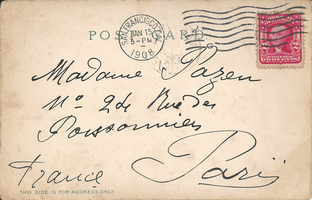 POST CARD
SAN FRANCISCO, CAL.
JAN 15
5 - PM
1906
2 2
Madame Pazen
No 24 Rue des
Poissonniers
Paris
France
THIS SIDE IS FOR ADDRESS ONLY